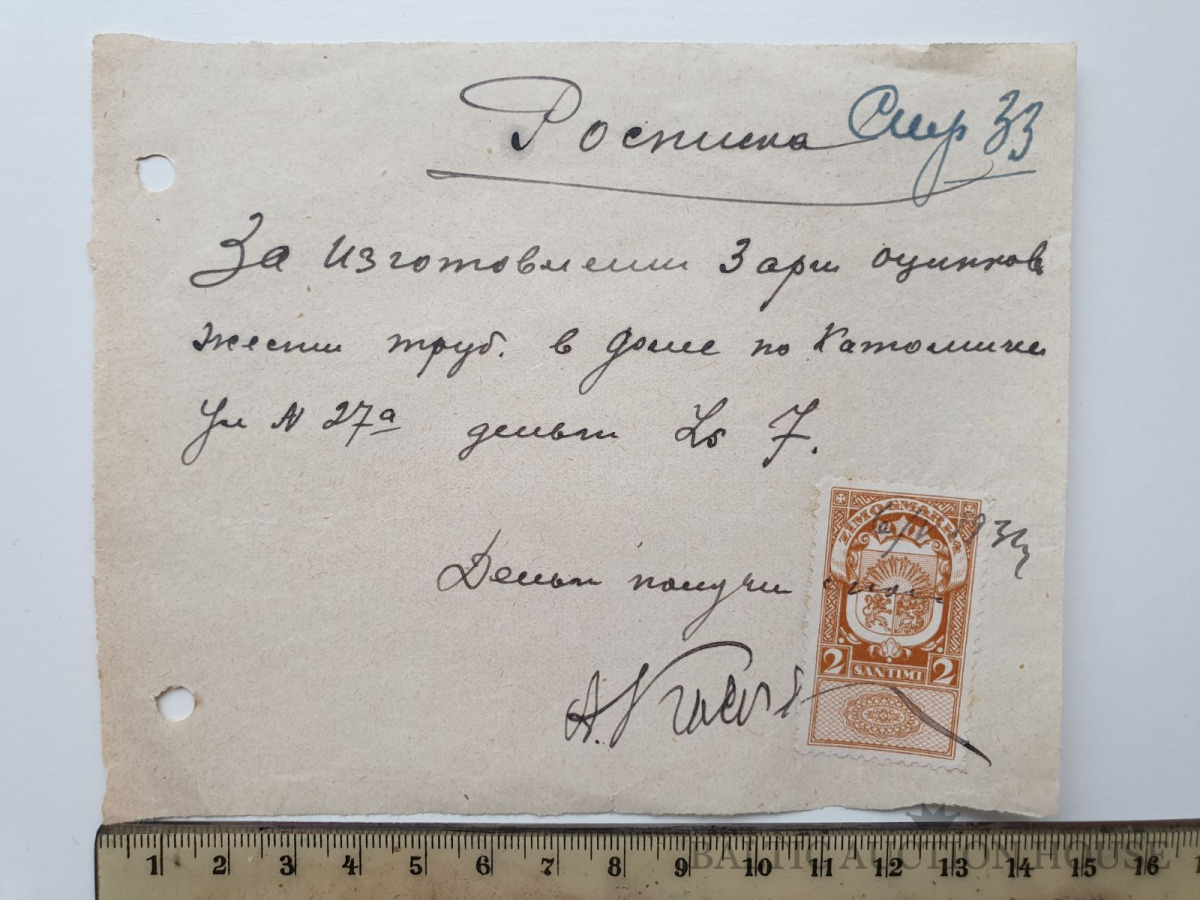 Росписка Стр 33
За изготовлении 3 арш оцинков
жести труб. в доме по Католиче
ул N 27а деньги Ls 7.
ZĪMOGMARKA
Деньги получил
2 SANTIMI 2
А.
1 2 3 4 5 6 7 8 9 10 11 12 13 14 15 16
BALTIC AUCTION HOUSE